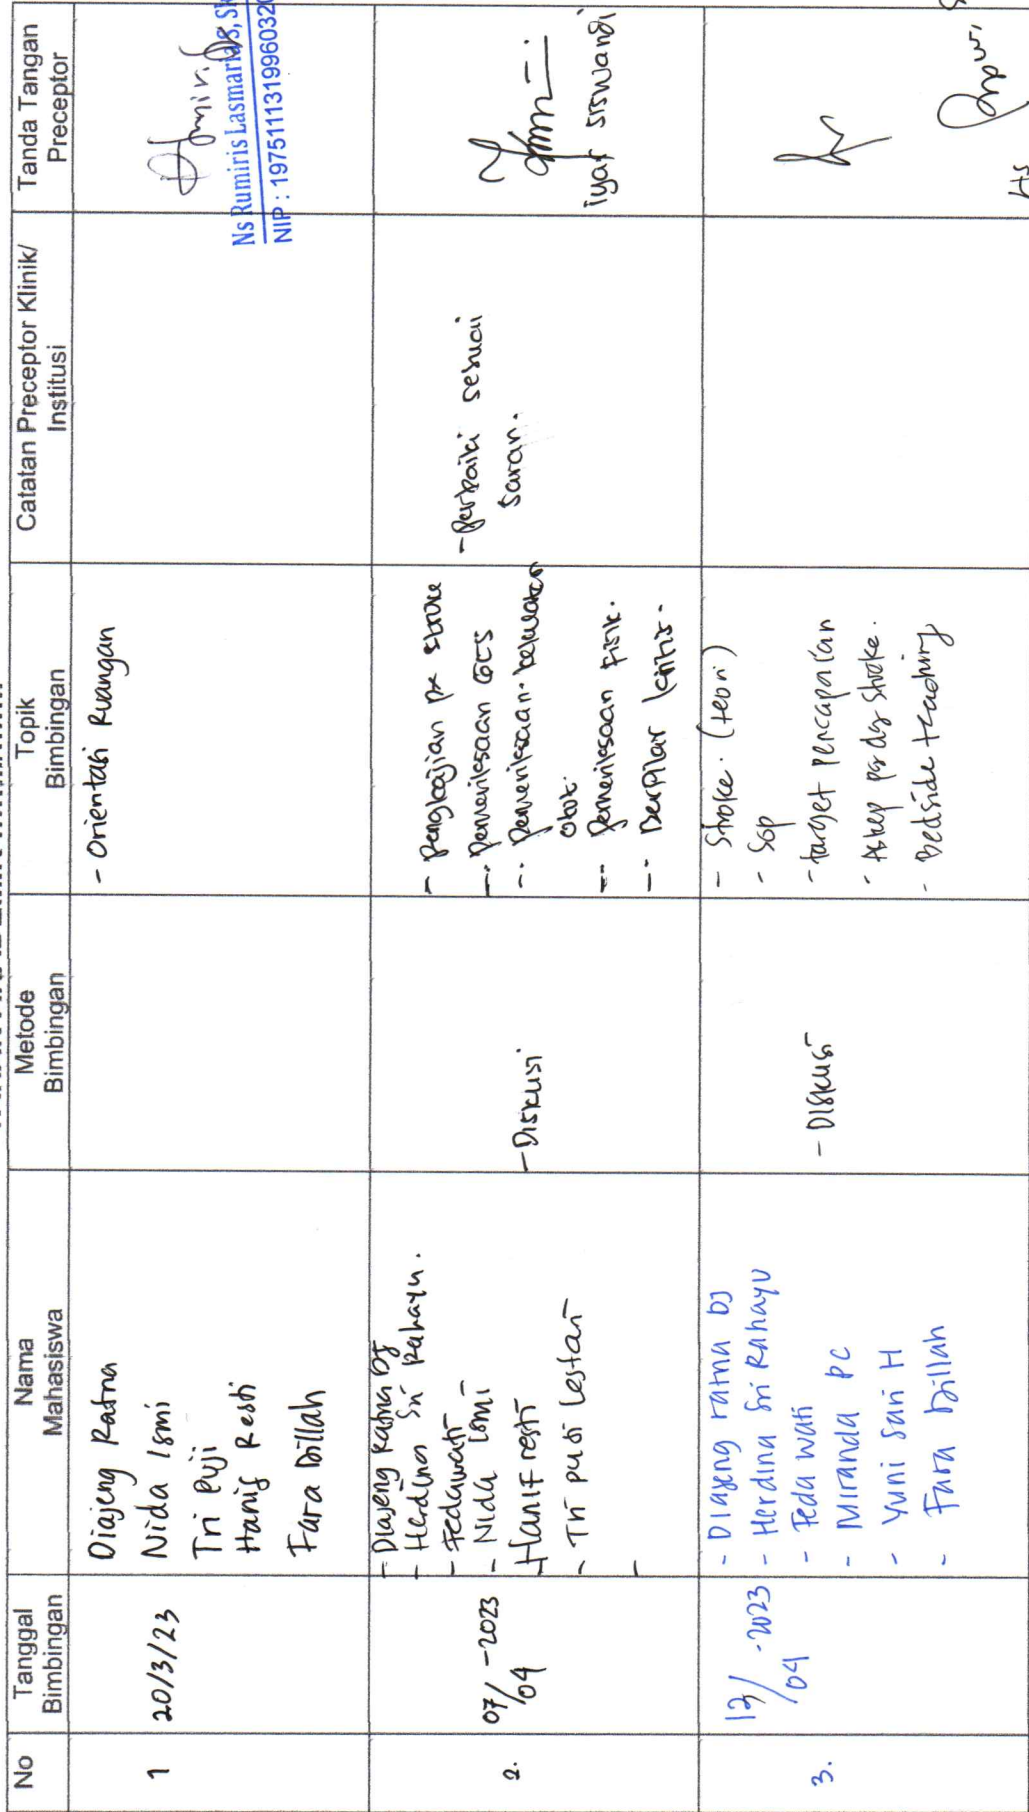 No
Tanggal
Bimbingan
Nama
Mahasiswa
Metode
Bimbingan
Topik
Bimbingan
Catatan Preceptor Klinik/
Institusi
Tanda Tangan
Preceptor
1
20/3/23
Diajeng Ratna
Nida Ismi
Tri Puji
Hanif Resti
Fara Dillah
- Orientasi Ruangan
Ns Rumiris Lasmaria S, SK
NIP : 1975111319960320
2.
07/04 -2023
- Diajeng Ratna DJ
- Herdina Sri Rahayu.
- Fedawati
- Nida Ismi
Hanif resti
- Tri puji Lestari
-
- Diskusi
- Pengkajian px stroke
- Pemeriksaan GCS
- Pemeriksaan kekuatan
otot.
- Pemeriksaan Fisik.
- Berpikir kritis.
- Perbaiki sesuai
saran.
iyar siswandi
3.
12/04 -2023
- Diajeng ratna DJ
- Herdina Sri Rahayu
- Feda wati
- Miranda PC
- Yuni Sari H
- Fara Dillah
- Diskusi
- Stroke. (teori)
- SOP
- target pencapaian
- Askep ps dg Stroke.
- Bedside teaching
Hs